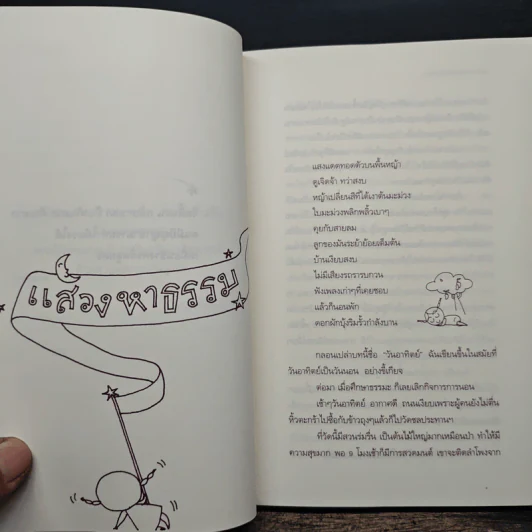 แสวงหาธรรม
แสงแดดทอดตัวบนพื้นหญ้า
ดูเจิดจ้า ทว่าสงบ
หญ้าเปลี่ยนสีที่ใต้เงาต้นมะม่วง
ใบมะม่วงพลิกพลิ้วเบาๆ
คุยกับสายลม
ลูกของมันระย้าย้อยเต็มต้น
บ้านเงียบสงบ
ไม่มีเสียงรถรารบกวน
ฟังเพลงเก่าๆที่เคยชอบ
แล้วก็นอนพัก
ดอกผักบุ้งริมรั้วกำลังบาน
กลอนเปล่าบทนี้ชื่อ "วันอาทิตย์" ฉันเขียนขึ้นในสมัยที่
วันอาทิตย์เป็นวันนอน อย่างขี้เกียจ
ต่อมา เมื่อศึกษาธรรมะ ก็เลยเลิกกิจการการนอน
เช้าๆวันอาทิตย์ อากาศดี ถนนเงียบเพราะผู้คนยังไม่ตื่น
หิ้วตะกร้าไปซื้อกับข้าวถุงๆแล้วก็ไปวัดชลประทานฯ
ที่วัดนี้มีสวนร่มรื่น เป็นต้นไม้ใหญ่มากเหมือนป่า ทำให้มี
ความสุขมาก พอ ๑ โมงเช้าก็มีการสวดมนต์ เขาจะติดลำโพงจาก